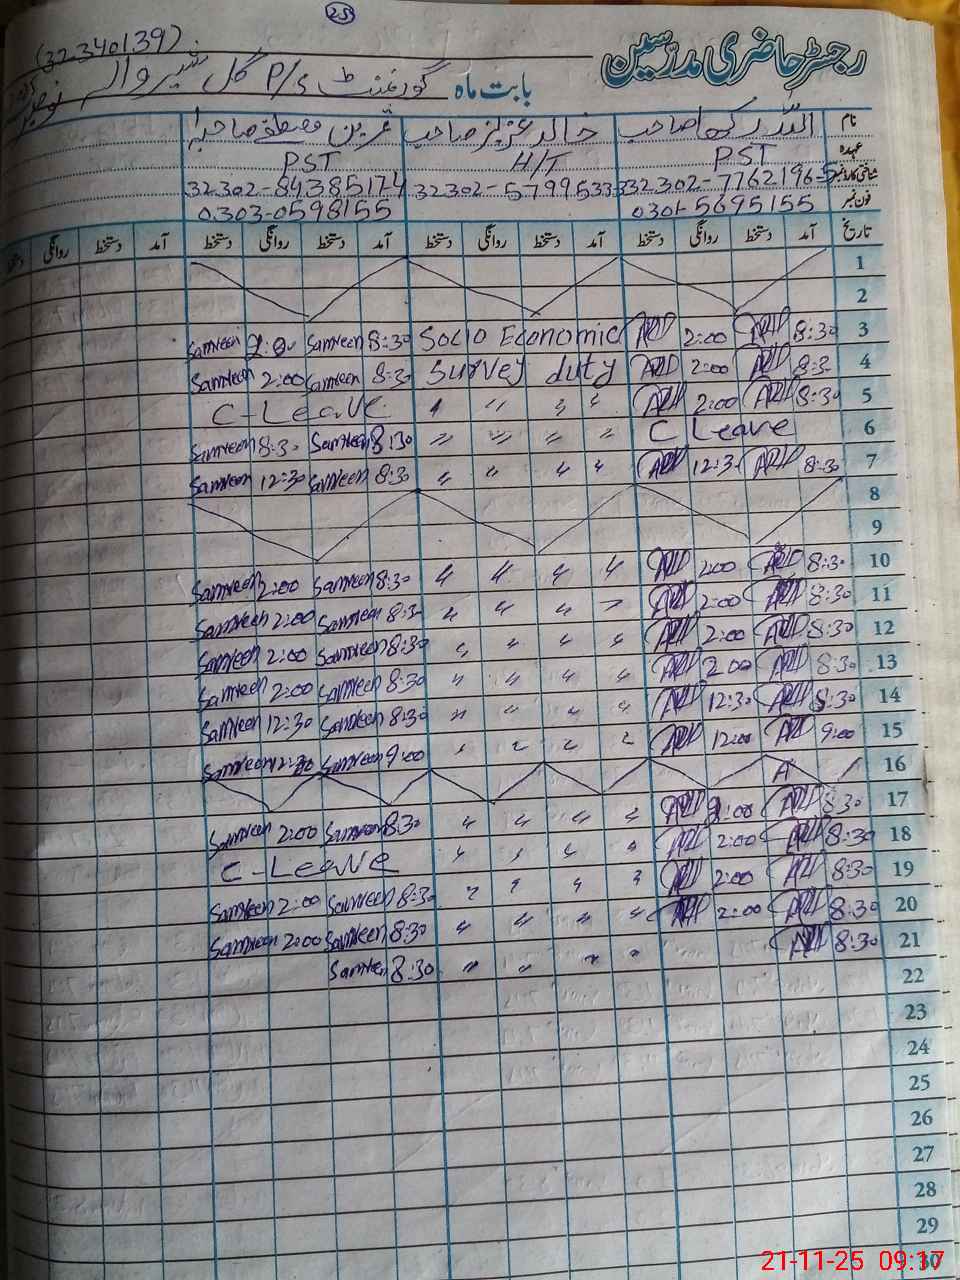 25
رجسٹر حاضری مدرسین
(32340139)
بابت ماہ گورنمنٹ P/S گل شیر والہ
نام اللہ رکھا صاحب خالد عزیز صاحب ثمرین مصطفے صاحبہ
عہدہ PST H/T PST
شناختی کارڈ نمبر 32302-7762196-5 32302-5799533 32302-8438517-4
فون نمبر 0301-5695155 0303-0598155
تاریخ آمد دستخط روانگی دستخط آمد دستخط روانگی دستخط آمد دستخط روانگی دستخط آمد دستخط روانگی
1
2
Samreen 2:00 Samreen 8:30 Socio Economic 2:00 8:30 3
Samreen 2:00 Samreen 8:30 Survey duty 2:00 8:30 4
C-Leave 〃 〃 〃 〃 2:00 8:30 5
Samreen 8:30 Samreen 8:30 〃 〃 〃 〃 C Leave 6
Samreen 12:30 Samreen 8:30 〃 〃 〃 〃 12:30 8:30 7
8
9
Samreen 2:00 Samreen 8:30 〃 〃 〃 〃 2:00 8:30 10
Samreen 2:00 Samreen 8:30 〃 〃 〃 〃 2:00 8:30 11
Samreen 2:00 Samreen 8:30 〃 〃 〃 〃 2:00 8:30 12
Samreen 2:00 Samreen 8:30 〃 〃 〃 〃 2:00 8:30 13
Samreen 12:30 Samreen 8:30 〃 〃 〃 〃 12:30 8:30 14
Samreen 12:30 Samreen 9:00 〃 〃 〃 〃 12:00 9:00 15
16
Samreen 2:00 Samreen 8:30 〃 〃 〃 〃 2:00 8:30 17
C-Leave 〃 〃 〃 〃 2:00 8:30 18
Samreen 2:00 Samreen 8:30 〃 〃 〃 〃 2:00 8:30 19
Samreen 2:00 Samreen 8:30 〃 〃 〃 〃 2:00 8:30 20
Samreen 8:30 〃 〃 〃 〃 8:30 21
22
23
24
25
26
27
28
29
30
21-11-25 09:17